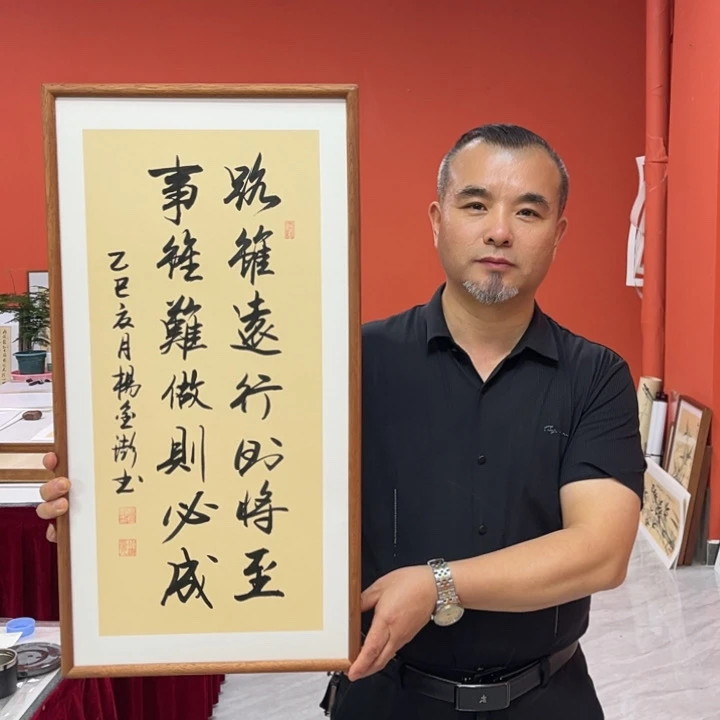 路雖遠行則將至
事雖難做則必成
乙巳夏月楊金書